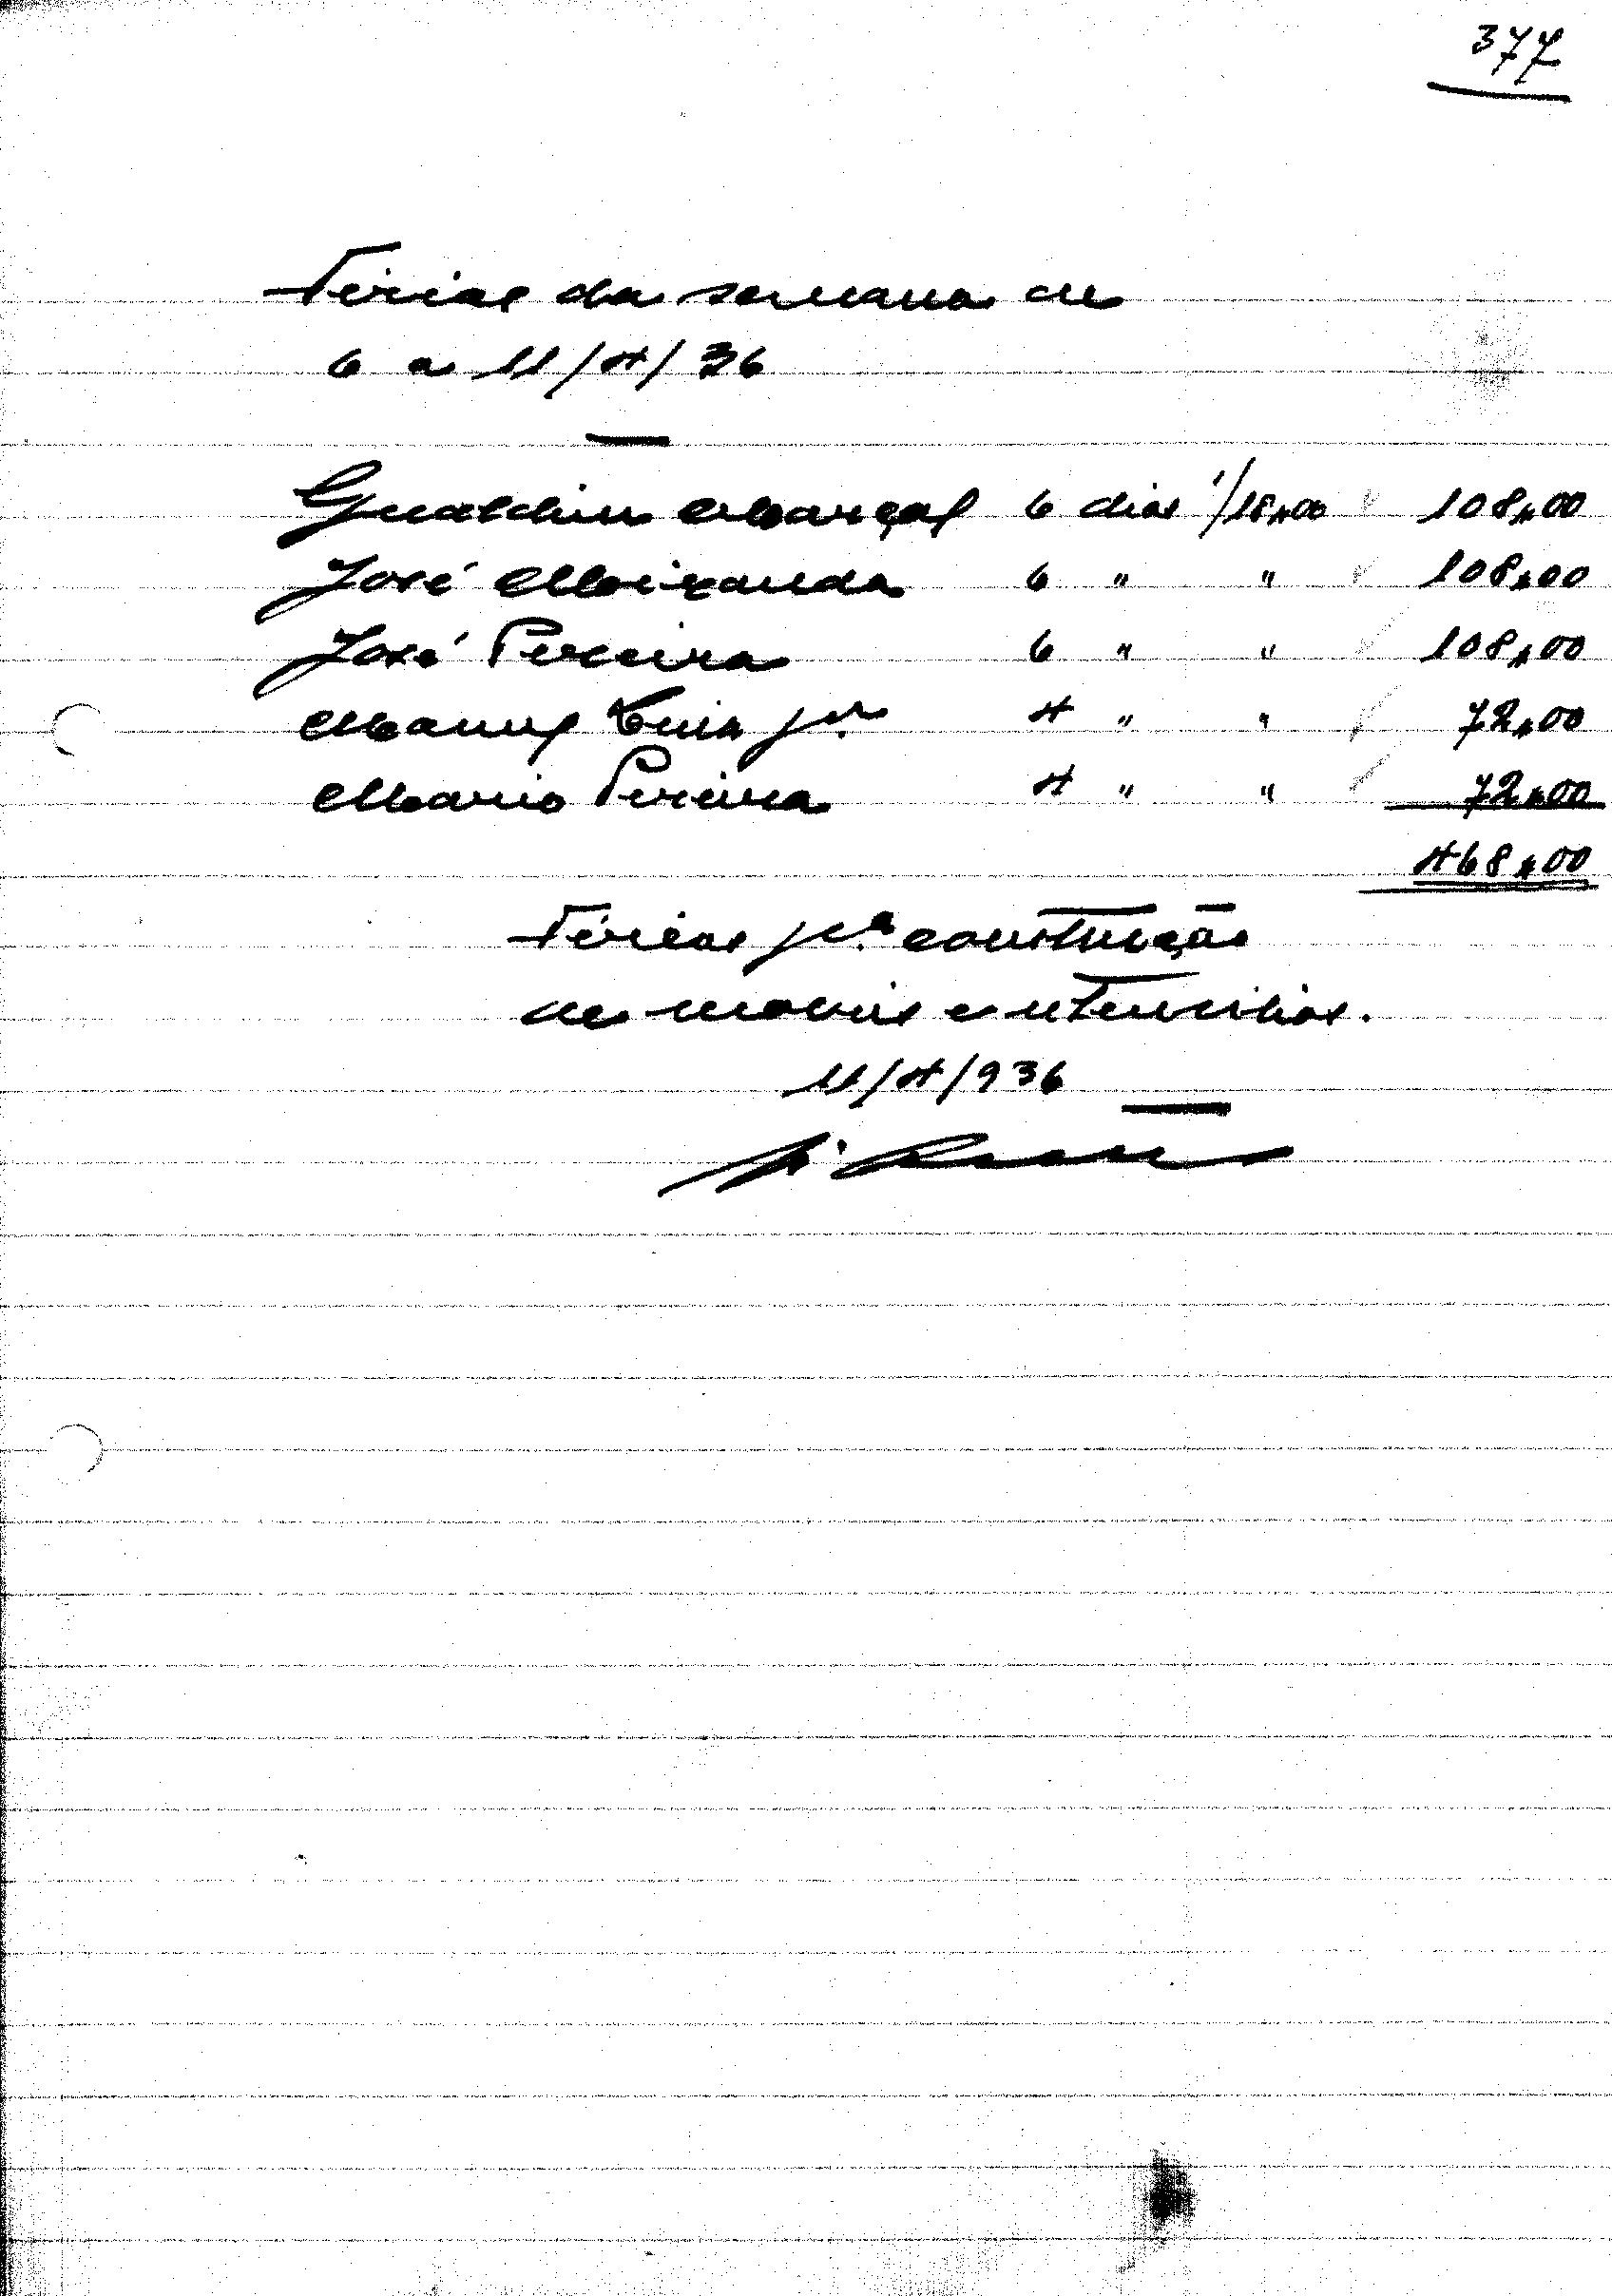 377
Férias da semana de
6 a 11/4/36
Gualdim Marçal 6 dias a/18$00 108$00
José Miranda 6 " " 108$00
José Pereira 6 " " 108$00
Manuel jor. 4 " " 72$00
Mario Pereira 4 " " 72$00
468$00
Férias pra construção
de moveis e utencilios.
11/4/936